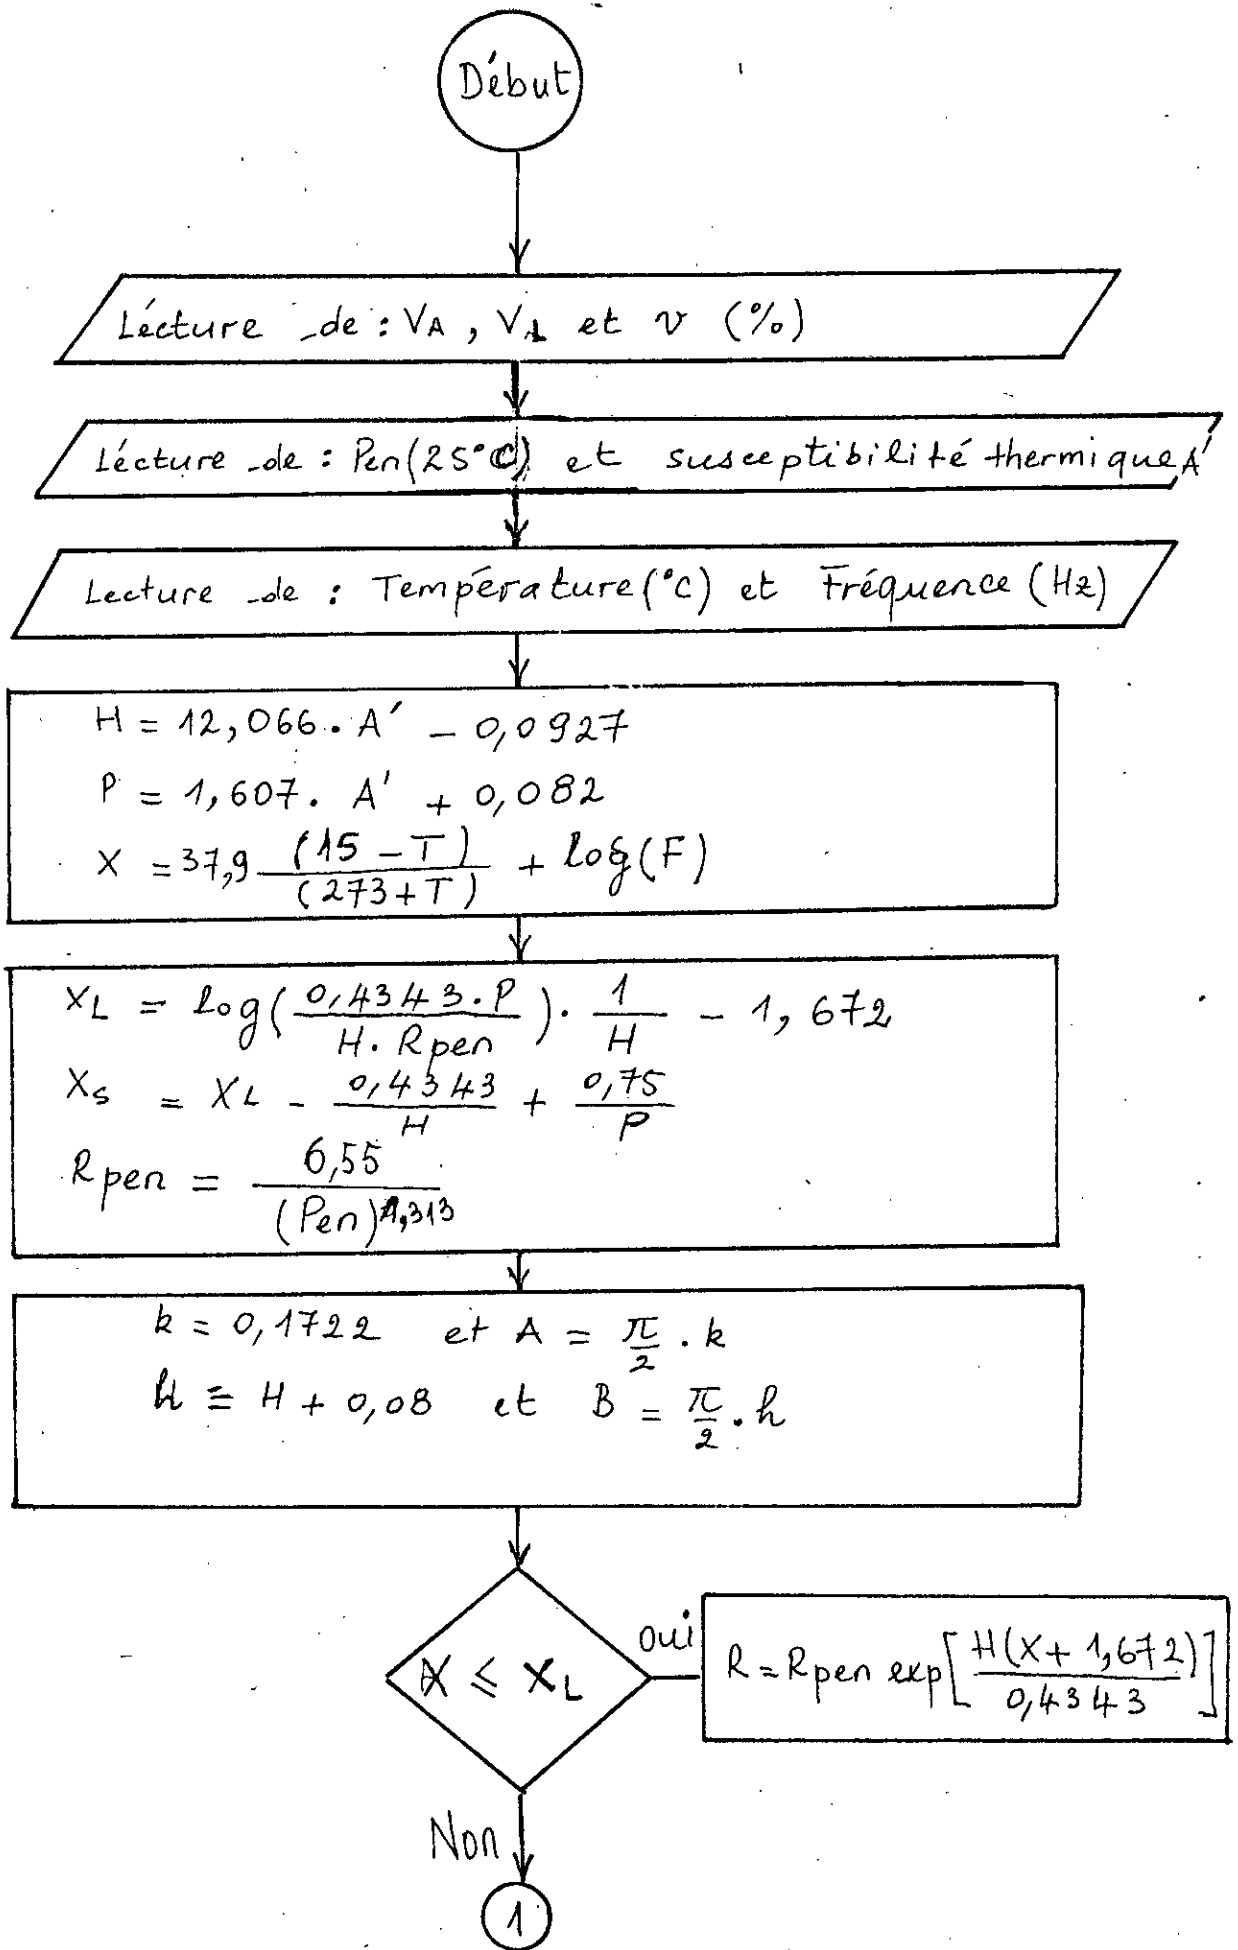 Début
Lécture de : VA , VL et v (%)
Lécture de : Pen(25°C) et susceptibilité thermique A'
Lecture de : Température(°C) et Fréquence (Hz)
H = 12,066 . A' - 0,0927
P = 1,607 . A' + 0,082
X = 37,9 (15 - T) / (273 + T) + log(F)
XL = log( 0,4343 . P / H . Rpen ) . 1 / H - 1,672
Xs = XL - 0,4343 / H + 0,75 / P
Rpen = 6,55 / (Pen)^1,313
k = 0,1722 et A = π/2 . k
h = H + 0,08 et B = π/2 . h
X ≤ XL
oui
R = Rpen exp[ H(X + 1,672) / 0,4343 ]
Non
1